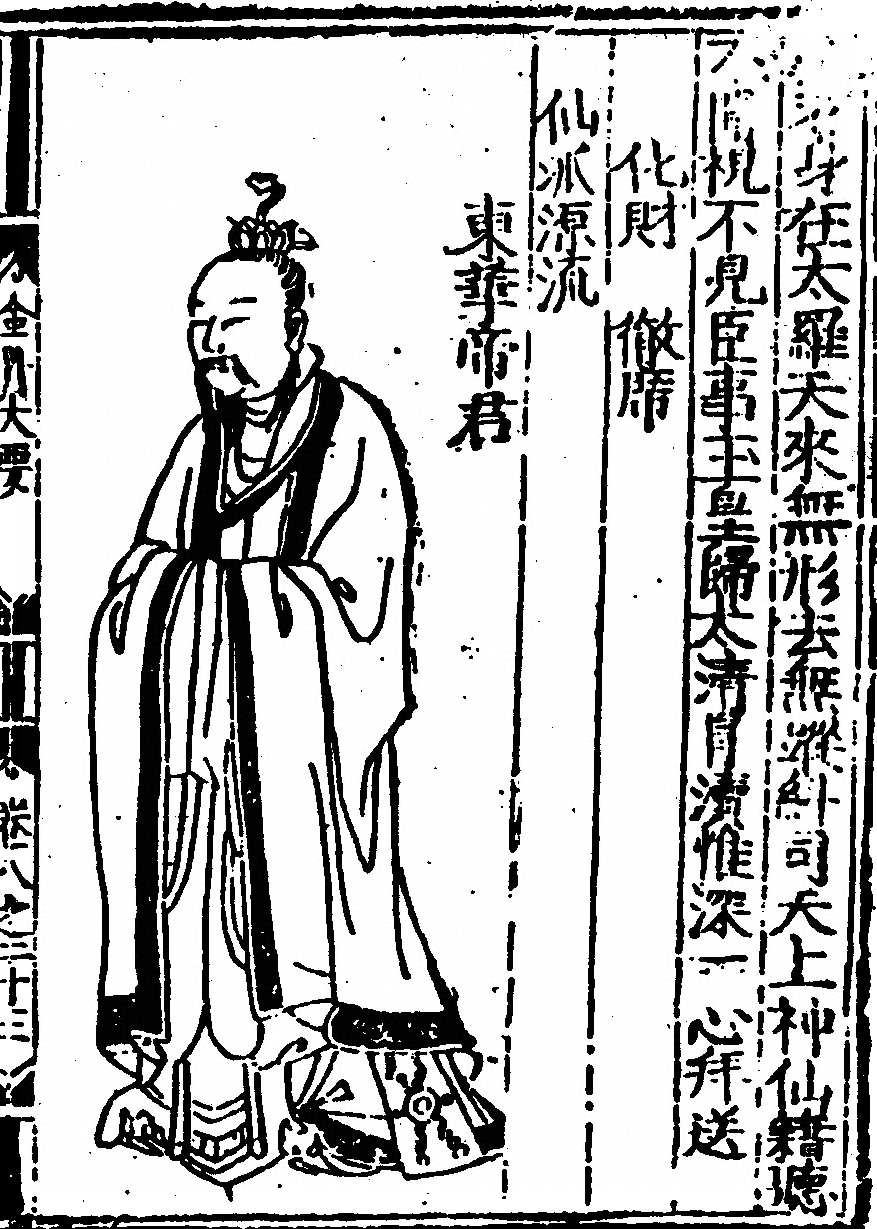 身在太羅天來無形去無蹤糾司天上神仙籍聽
視不見臣事玉皇歸太清肅清惟深一心拜送
化財　徹席
仙派源流
東華帝君
金丹大要
卷八之三十三